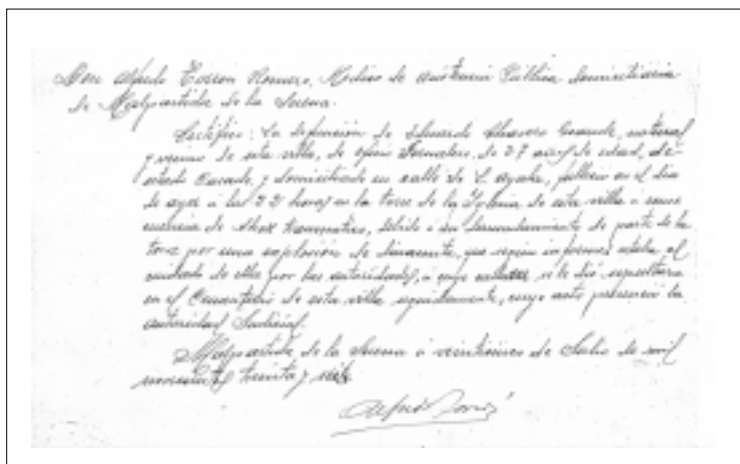 Don Alfredo Torron Romero, Medico de asistencia Pública domiciliaria
de Malpartida de la Serena.
Certifico: La defunción de Eduardo Chavero Grande, natural
y vecino de esta villa, de oficio Jornalero, de 27 años de edad, de
estado Casado, y domiciliado en calle de L. Ayala, falleció en el dia
de ayer a las 22 horas en la torre de la Iglesia de esta villa a conse
cuencia de Shok traumatico, debido a un derrumbamiento de parte de la
torre por una explosión de dinamita, que según informes estaba al
cuidado de ella por las autoridades, a cuyo cadaver se le dió sepultura
en el Cementerio de esta villa seguidamente, cuyo acto presenció la
autoridad Judicial.
Malpartida de la Serena a de Julio de mil
novecientos treinta y